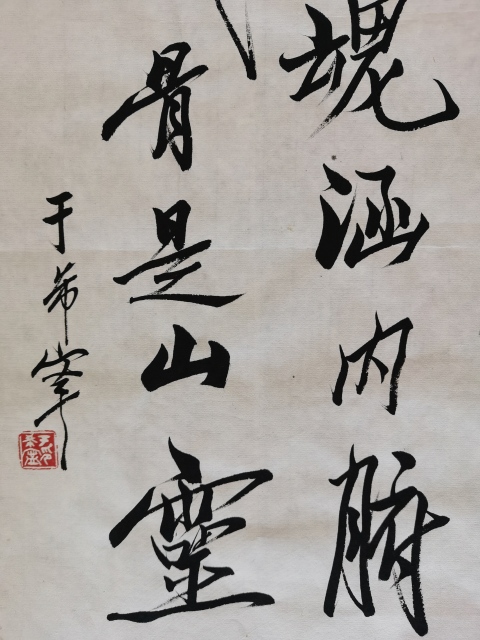 魂涵内腑
骨是山靈
于希寧